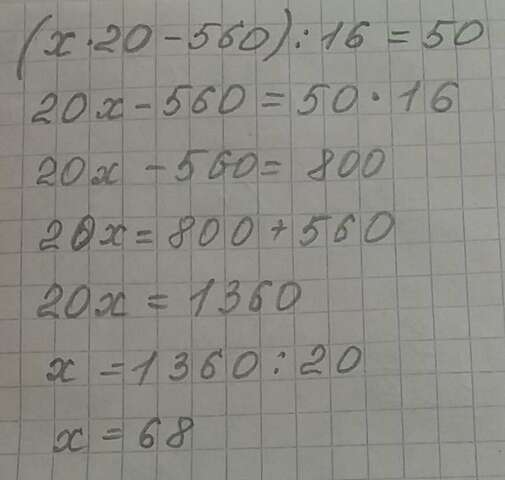 (x·20-560):16=50
20x-560=50·16
20x-560=800
20x=800+560
20x=1360
x=1360:20
x=68